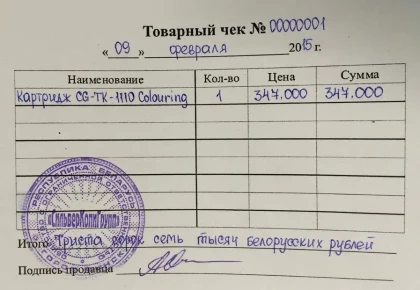 Товарный чек № 00000001
« 09 » февраля 2015 г.
Наименование Кол-во Цена Сумма
Картридж CG-TK-1110 Colouring 1 347.000 347.000
РЕСПУБЛИКА БЕЛАРУСЬ
«СильверКопиГрупп»
Итого Триста сорок семь тысяч белорусских рублей
Подпись продавца